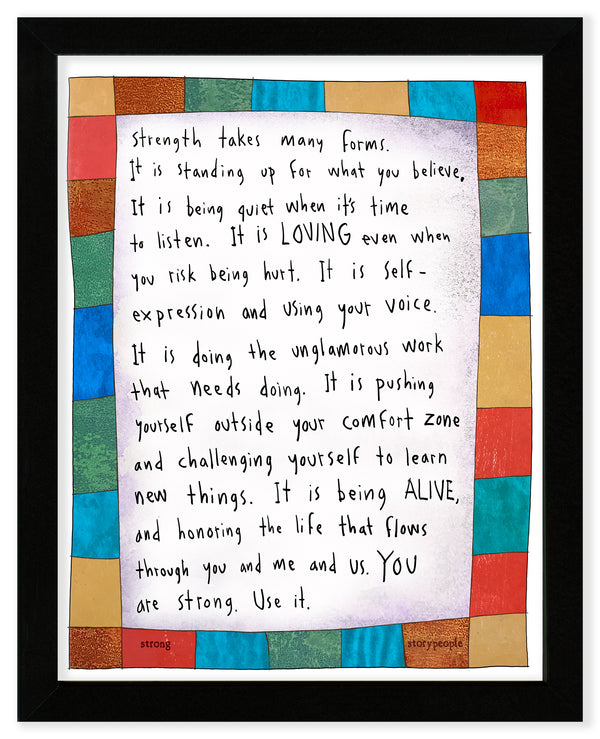 strength takes many forms.
It is standing up for what you believe,
It is being quiet when it's time
to listen. It is LOVING even when
you risk being hurt. It is self-
expression and using your voice.
It is doing the unglamorous work
that needs doing. It is pushing
yourself outside your comfort zone
and challenging yourself to learn
new things. It is being ALIVE,
and honoring the life that flows
through you and me and us. YOU
are strong. Use it.
strong
storypeople